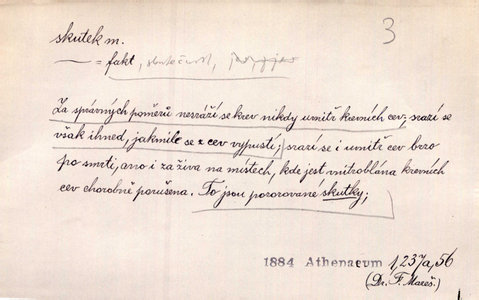 skutek m.
— = fakt, skutečnost,
3
Za správných poměrů nesráží se krev nikdy umitř krevních cev; srazí se
však ihned, jakmile se z cev vypustí; srazí se i umitř cev brzo
po smrti, ano i za živa na místech, kde jest vnitroblána krevních
cev chorobně porušena. To jsou pozorované skutky;
1884 Athenaeum 1,237a,56
(Dr. F. Mareš.)